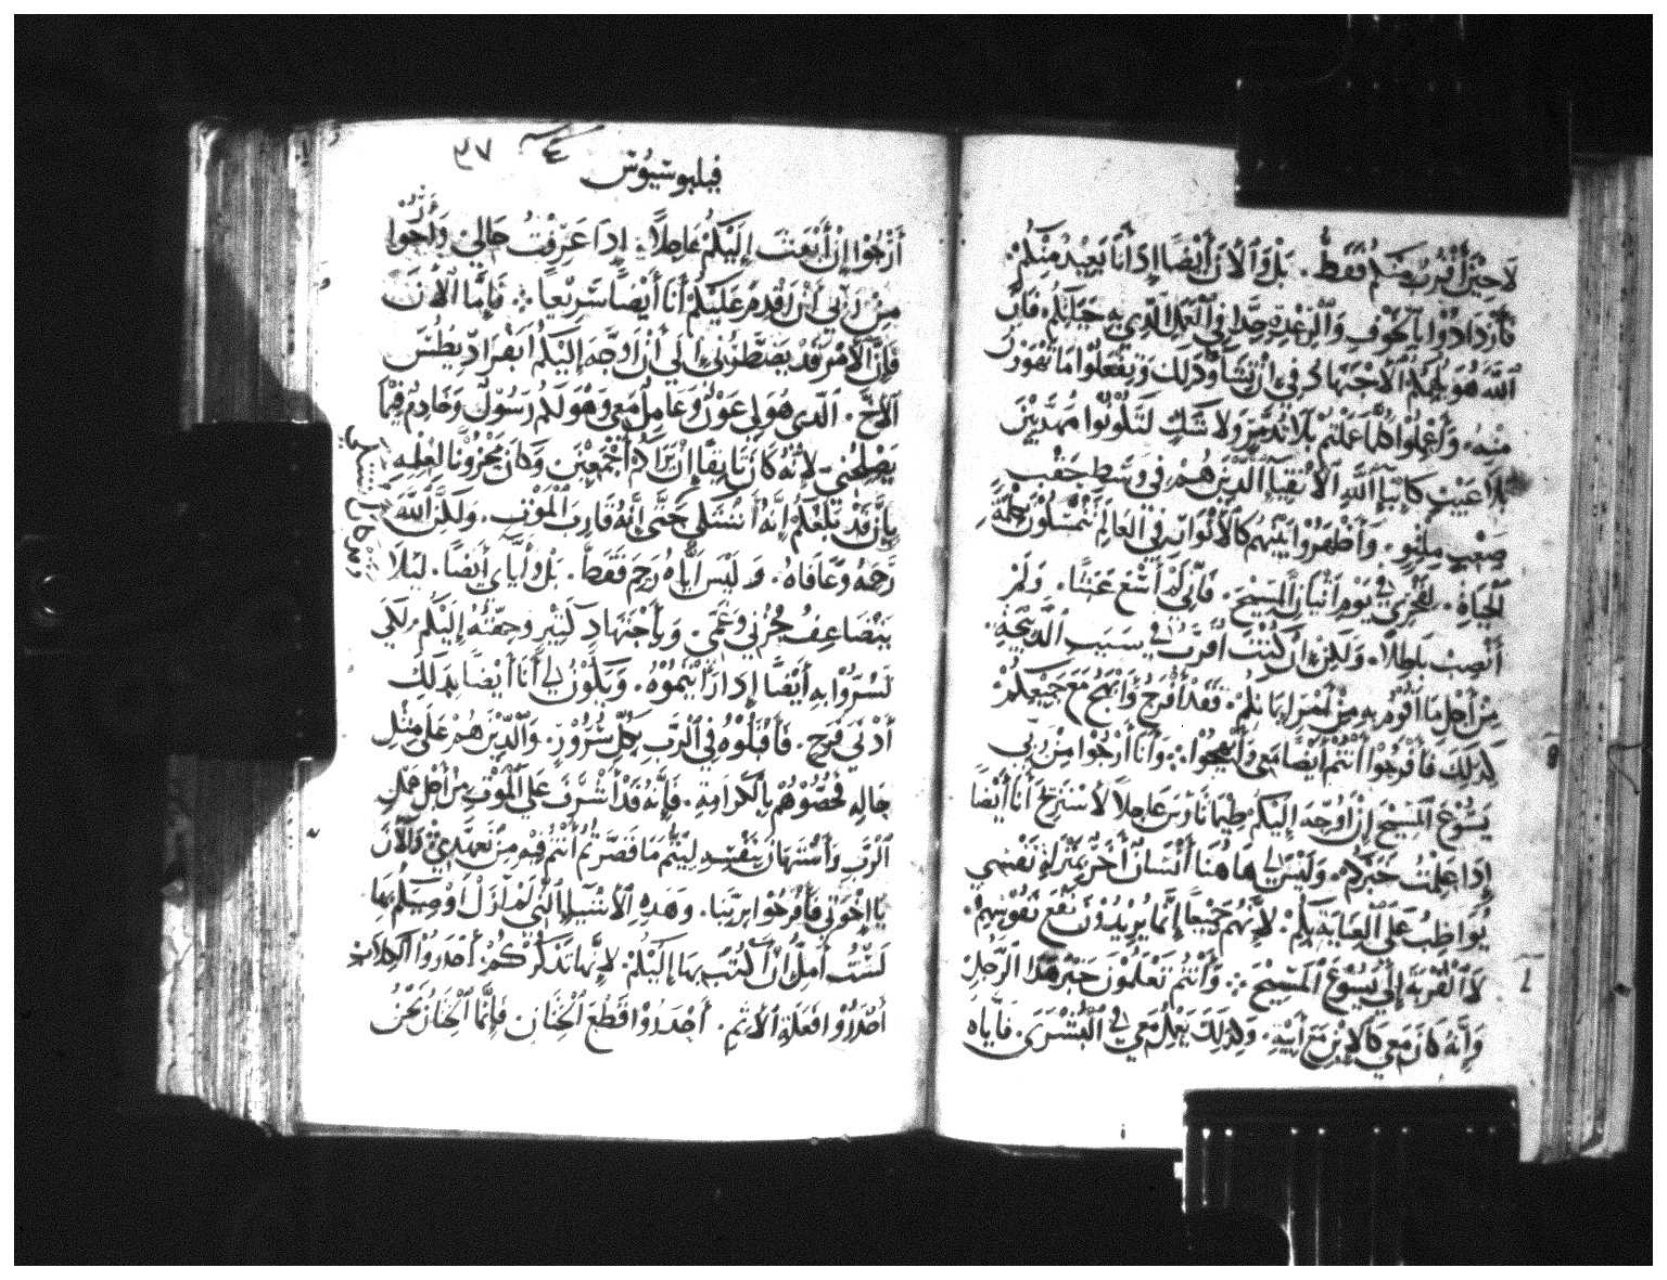 لَا حِيْنَ أَقْرُبُ مِنْكُمْ فَقَطْ. بَلْ وَٱلْأَنَ أَيْضًا إِذَ أَنَا بَعِيْدٌ مِنْكُمْ.
فَٱزْدَادُوْا بِٱلْخَوْفِ وَٱلرِّعْدِةِ جِدًّا فِي ٱلْعَمَلِ ٱلَّذِي بِهِ حَيَاتُكُمْ فَإِنَّ
ٱللَّهَ هُوَ ٱلْأَجْتِهَادَ فِي إِنْ تَشَآؤُ ذَلِكَ وَتَفْعَلُوْا مَا تَهْوَوْنَ
مِنْهُ. وَٱعْمِلُوْا كُلَّمَا عَمَلْتُمْ بِلَا تَذَمُّرٍ وَلَا شَكٍ لِتَكُوْنُوْا مُهَذَّبِيْنَ
بِلَا عَيْبٍ كَابْنَآءِ ٱللَّهِ ٱلْأَنْقِيَآءِ ٱلَّذِيْنَ هُمْ فِي وَسَطِ حَقْبٍ
صَعْبٍ مُلْتَوٍ. وَأَظْهَرُوْا بَيْنَهُمْ كَٱلْأَنْوَارِ فِي ٱلْعَالَمِ تَتَمَسَّكُوْنَ بِكَلِمَةِ
ٱلْحَيَاةِ. لِفَخْرِي فِي يَوْمِ أَتْيَانِ ٱلْمَسِيْحِ. فَإِنِّي لَمْ أَسْعَ عَبَثًا. وَلَمْ
أَنْصِبْ بَاطِلًا. وَلَكِنْ إِنْ كُنْتُ أُقَرَّبُ فِي سَبَبِ ٱلذَّبِيْحَةِ.
مِنْ أَجْلِ مَا أَقُوْمُ بِهِ مِنْ أَمْرِ إِيْمَانِكُمْ. فَقَدْ أَفْرَحُ وَٱبْتَهِجُ مَعَ جَمِيْعِكُمْ
كَذَلِكَ فَٱفْرَحُوْا أَنْتُمْ أَيْضًا مَعِي وَٱبْتَهِجُوْا ∴ وَأَنَا أَرْجُوْا مِنْ رَبِّي
يَسُوْعَ ٱلْمَسِيْحِ إِنْ أُوَجِّهَ إِلَيْكُمْ طِيْمَاثَاوُسَ عَاجِلًا لِأَسْتَرِيْحَ أَنَا أَيْضًا
إِذَا عَلِمْتُ خَبَرَكُمْ. وَلَيْسَ لِي هَاهُنَا أَنْسَانٌ أَخَرُ بِمَنْزِلَةِ نَفْسِي
يُوَاظِبُ عَلَى ٱلْعِنَايَةِ بِكُمْ. لِأَنَّهُمْ جَمِيْعًا إِنَّمَا يُرِيْدُوْنَ نَفْعَ نُفُوْسِهِمْ.
لَا ٱلْقُرْبَةَ إِلَى يَسُوْعَ ٱلْمَسِيْحَ ∴ وَأَنْتُمْ تَعْلَمُوْنَ خَبَرَ هَذَا ٱلرَّجُلِ
وَإِنَّهُ كَانَ مَعِي كَٱلْإِبْنِ مَعَ أَبِيْهِ. وَلِذَلِكَ يَعْمِلُ مَعِي فِي ٱلْبُشْرَى. فَإِيَّاهُ
فيلبوسيوس ٣٧
أَرْجُوْا إِنْ أَبْعَثَ إِلَيْكُمْ عَاجِلًا. إِذَا عَرَفْتُ حَالِي وَأَرْجُوْا
مِنْ رَبِّي أَنْ أَقْدِمَ عَلَيْكُمْ أَنَا أَيْضًا سَرِيْعًا ∴ فَإِمَّا ٱلْأَنَ
فَإِنَّ ٱلْأَمْرَ قَدْ يَضْطَرُّنِي إِلَى أَنْ أُوَجِّهَ إِلَيْكُمْ أَبَفْرَادِيْطُسَ
ٱلْأَخَ. ٱلَّذِي هُوَ لِي عَوْنٌ وَعَامِلٌ مَعِي وَهُوَ لَكُمْ رَسُوْلٌ وَخَادِمٌ فِيْمَا
يُصْلِحُنِي لِأَنَّهُ كَانَ تَايِقًا إِنْ يَرَاكُمْ أَجْمَعِيْنَ وَكَانَ مَحْزُوْنًا لِعِلْمِهِ
بِإِنْ قَدْ بَلَغَكُمْ إِنَّهُ أَشْتَكَى حَتَّى إِنَّهُ قَارَبَ ٱلْمَوْتَ. وَلَكِنَّ ٱللَّهَ
رَحِمَهُ وَعَافَاهُ. وَلَيْسَ إِيَّاهُ رَحِمَ فَقَطْ. بَلْ وَإِيَّايَ أَيْضًا. لِئَلَّا
يَتَضَاعَفُ حُزْنِي وَغَمِّي. وَبِأَجْتِهَادٍ كَثِيْرٍ وَجَّهْتُهُ إِلَيْكُمْ لِكَي
تَسُرُّوْا بِهِ أَيْضًا إِذَا رَأَيْتُمُوْهُ. وَيَكُوْنُ لِي أَنَا أَيْضًا بِذَلِكَ
أَدْنَى فَرَحٍ. فَٱقْبَلُوْهُ فِي ٱلرَّبِّ بِكُلِّ سُرُوْرٍ. وَٱلَّذِيْنَ هُمْ عَلَى مِثْلِ
حَالِهِ فَخُصُّوْهُمْ بِٱلْكَرَامَةِ. فَإِنَّهُ قَدْ أَشْرَفَ عَلَى ٱلْمَوْتِ مِنْ أَجْلِ عَمَلِ
ٱلرَّبِّ وَأَسْتَهَانَ بِنَفْسِهِ لِيُتِمَّ مَا قَصَّرْتُمْ أَنْتُمْ فِيْهِ مِنْ تَعَهُّدِي وَٱلْأَنَ
يَا إِخْوَتِي فَٱفْرَحُوْا بِرَبِّنَا. وَهَذِهِ ٱلْأَشْيَآءُ ٱلَّتِي لَمْ أَزَلْ أُوْصِيْكُمْ بِهَا
لَسْتُ أَمِلُّ أَنْ أَكْتُبَ بِهَا إِلَيْكُمْ. لِأَنَّهَا تُذَكِّرُكُمْ. أَحْذَرُوْا ٱلْكِلَابَ
أَحْذَرُوْا فَعَلَةَ ٱلْأَثْمِ. أَحْذَرُوْا قَطْعَ ٱلْخِتَانِ. فَإِنَّمَا ٱلْخِتَانُ نَحْنُ